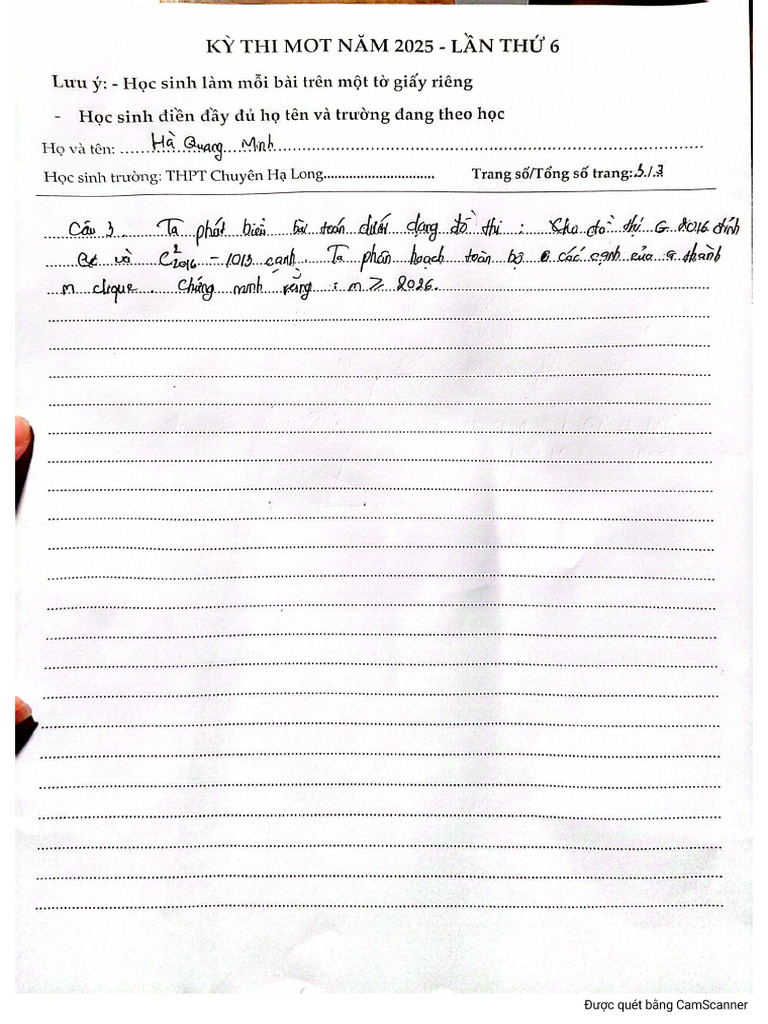 KỲ THI MOT NĂM 2025 - LẦN THỨ 6
Lưu ý: - Học sinh làm mỗi bài trên một tờ giấy riêng
- Học sinh điền đầy đủ họ tên và trường đang theo học
Họ và tên: Hà Quang Minh
Học sinh trường: THPT Chuyên Hạ Long Trang số/Tổng số trang: 3/3
Câu 3. Ta phát biểu bài toán dưới dạng đồ thị: Cho đồ thị G 2016 đỉnh
và C²₂₀₁₆ - 1013 cạnh. Ta phân hoạch toàn bộ các cạnh của G thành
m clique. Chứng minh rằng: m ≥ 2026.
Được quét bằng CamScanner